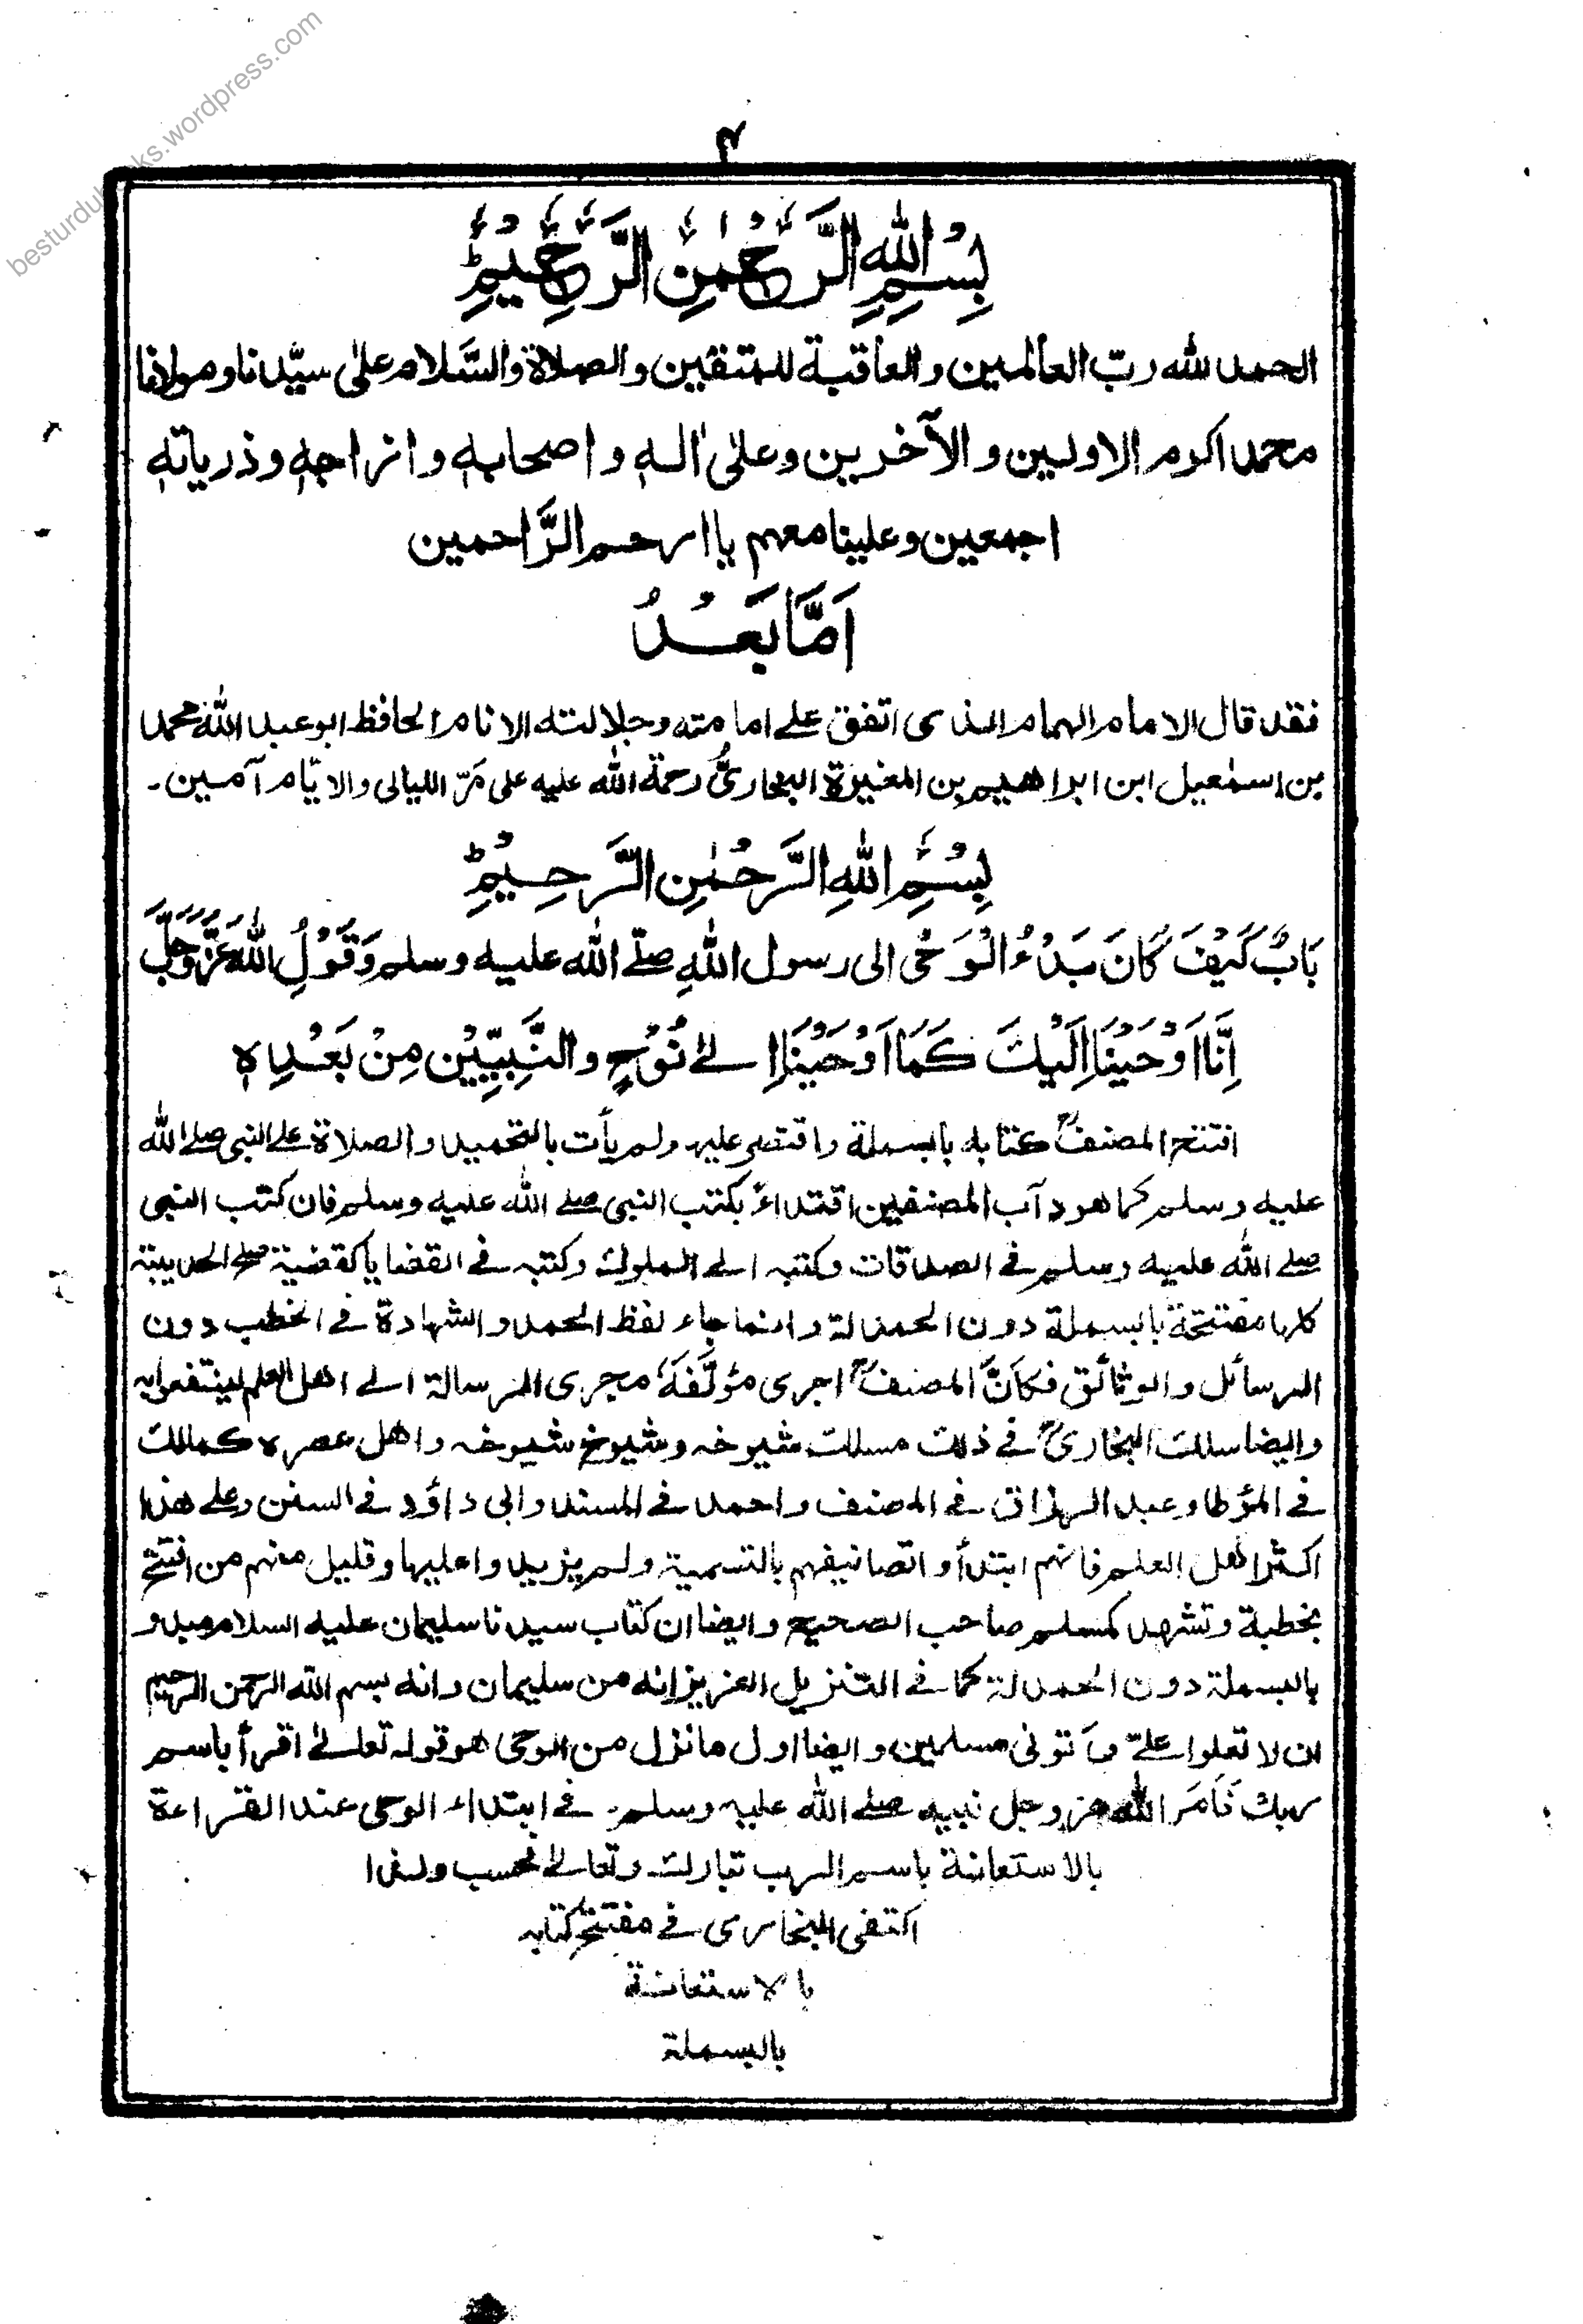 besturdubooks.wordpress.com
۴
بِسْمِ اللهِ الرَّحْمٰنِ الرَّحِيْمِ ط
الحمد لله ربّ العالمين والعاقبة للمتقين والصلاة والسَّلام علىٰ سيّدنا ومولانا
محمد اكرم الاولين والآخرين وعلىٰ اٰلهٖ واصحابهٖ وازواجهٖ وذرياتهٖ
اجمعين وعلينا معهم يا ارحم الرَّاحمين
اَمَّا بَعْدُ
فقد قال الامام الهمام الذى اتفق علے امامته وجلالته الانام الحافظ ابو عبد الله محمد
بن اسمٰعيل ابن ابراهيم بن المغيرة البخاریُّ رحمة الله عليه على مَرّ الليالى والايّام آمين۔
بِسْمِ اللهِ الرَّحْمٰنِ الرَّحِيْمِ ط
بَابٌ كَيْفَ كَانَ بَدْءُ الْوَحْى الى رسول اللهِ صلّے الله عليه وسلم وَقَوْلِ اللهِ عَزَّوَجَلَّ
اِنَّا اَوْحَيْنَا اِلَيْكَ كَمَا اَوْحَيْنَا اِلےٰ نُوْحٍ والنَّبِيّٖيْنَ مِنْ بَعْدِهٖ
افتتح المصنفؒ كتابه بالبسملة واقتصر عليه ولم يأت بالتحميد والصلاة علے النبى صلے الله
عليه وسلم كما هو دآب المصنفين اقتداءً بكتب النبى صلے الله عليه وسلم فان كتب النبى
صلے الله عليه وسلم فے الصدقات وكتبه الے الملوك وكتبه فے القضايا كقضية صلح الحديبية
كلها مفتتحة بالبسملة دون الحمدلة وانما جاء لفظ الحمد والشهادة فے الخطب دون
الرسائل والوثائق فكأنَّ المصنفؒ اجرى مؤلَّفَهٗ مجرى الرسالة الے اهل العلم لينتفعوا به
وايضا سلك البخارىؒ فے ذلك مسلك شيوخه وشيوخ شيوخه واهل عصره كمالك
فے المؤطا وعبد الرزاق فے المصنف واحمد فے المسند وابى داؤد فے السنن وعلے هذا
اكثر اهل العلم فانهم ابتدأوا تصانيفهم بالتسمية ولم يزيدوا عليها وقليل منهم من افتتح
بخطبة وتشهد كمسلم صاحب الصحيح وايضا ان كتاب سيدنا سليمان عليه السلام مبدو
بالبسملة دون الحمدلة كما فے التنزيل العزيز انه من سليمان وانه بسم الله الرحمن الرحيم
ان لا تعلوا علےّ وأتونى مسلمين وايضا اول ما نزل من الوحى هو قوله تعالےٰ اقرأ باسم
ربك فَاَمَرَ الله عزوجل نبيه صلے الله عليه وسلم۔ فے ابتداء الوحى عند القراءة
بالاستعانة باسم الرب تبارك وتعالےٰ فحسب ولذا
اكتفى البخارى فے مفتتح كتابه
بالاستعانة
بالبسملة